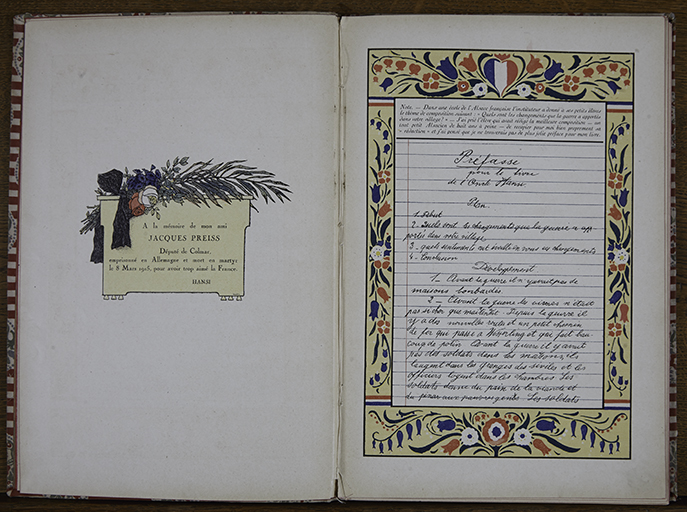 A la mémoire de mon ami
JACQUES PREISS
Député de Colmar,
emprisonné en Allemagne et mort en martyr
le 8 Mars 1915, pour avoir trop aimé la France.
HANSI
Note. — Dans une école de l'Alsace française l'instituteur a donné à ses petits élèves
le thème de composition suivant : « Quels sont les changements que la guerre a apportés
dans notre village? » — J'ai prié l'élève qui avait rédigé la meilleure composition — un
tout petit Alsacien de huit ans à peine — de recopier pour moi bien proprement sa
« rédaction » et j'ai pensé que je ne trouverais pas de plus jolie préface pour mon livre.
Préfasse
pour le livre
de l'Oncle Hansi
Plan
1. Début
2. Quels sont les changements que la guerre a ap-
portés dans notre village
3. quels sentiments ont éveillé en vous ces changements
4. Conclusion
Dévelopement
1 — Avant la guerre il n'y avait pas de
maisons bombardés
2 — Avant la guerre les vivres n'était
pas si cher que maitenant. Depuis la guerre il
y a des nouvelles routes et un petit chemin
de fer qui passe a Wesserling et qui fait bau-
coup de potin Avant la guerre il y avait
pas des soldats dans les maisons, ils
laugent dans les granges des civiles et les
officiers logent dans les chambres Les
soldats donne du pain de la viande et
du pinar aux pauvres gens Les soldats